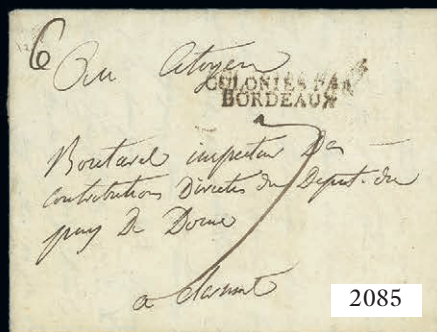 6
Au Citoyen
COLONIES PAR
BORDEAUX
Boutarel inspecteur Des
contributions Directes du Depart. du
puy De Dome
7
a Clermont
2085